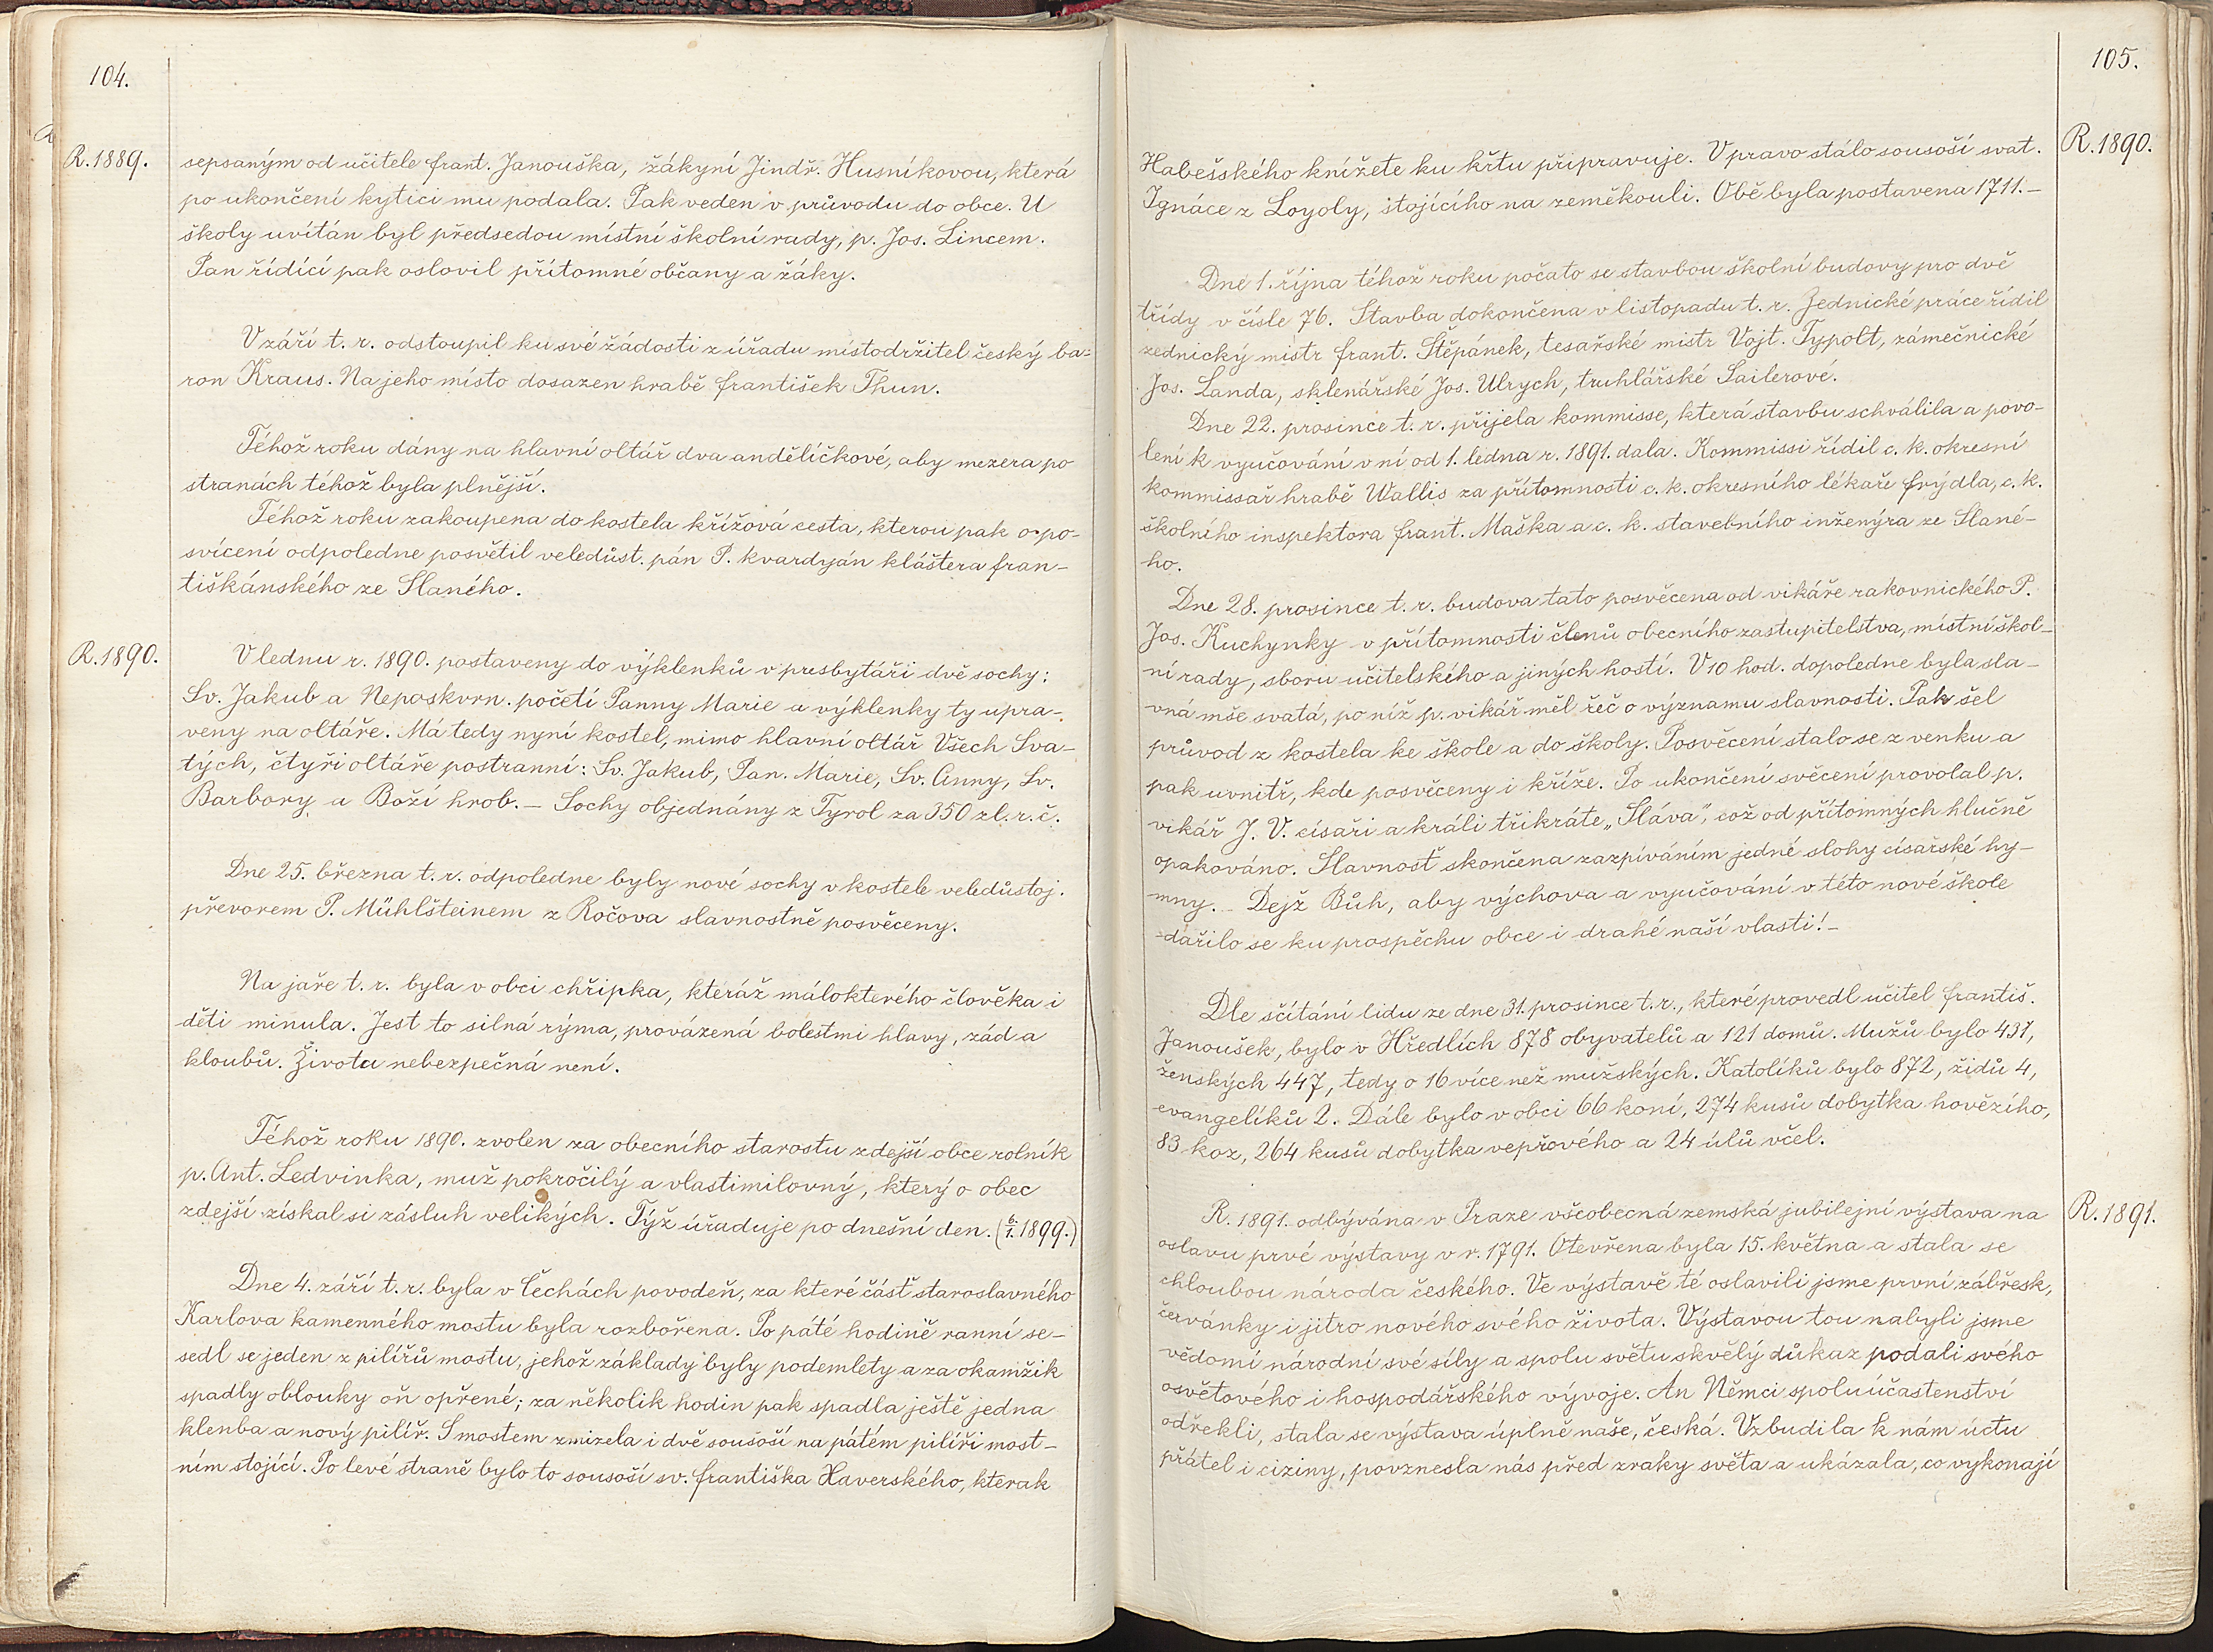 104.
R. 1889.
sepsaným od učitele Frant. Janouška, žákyní Jindř. Husníkovou, která
po ukončení kytici mu podala. Pak veden v průvodu do obce. U
školy uvítán byl předsedou místní školní rady, p. Jos. Lincem.
Pan řídící pak oslovil přítomné občany a žáky.
V září t. r. odstoupil ku své žádosti z úřadu místodržitel český ba=
ron Kraus. Na jeho místo dosazen hrabě František Thun.
Téhož roku dány na hlavní oltář dva andělíčkové, aby mezera po
stranách téhož byla plnější.
Téhož roku zakoupena do kostela křížová cesta, kterou pak o po-
svícení odpoledne posvětil veledůst. pán P. kvardyán kláštera fran-
tiškánského ze Slaného.
R. 1890.
V lednu r. 1890. postaveny do výklenků v presbytáři dvě sochy:
Sv. Jakub a Neposkvrn. početí Panny Marie a výklenky ty upra-
veny na oltáře. Má tedy nyní kostel, mimo hlavní oltář Všech Sva-
tých, čtyři oltáře postranní: Sv. Jakub, Pan. Marie, Sv. Anny, Sv.
Barbory a Boží hrob. – Sochy objednány z Tyrol za 350 zl. r. č.
Dne 25. března t. r. odpoledne byly nové sochy v kostele veledůstoj.
převorem P. Mühlšteinem z Ročova slavnostně posvěceny.
Na jaře t. r. byla v obci chřipka, kteráž málokterého člověka i
děti minula. Jest to silná rýma, provázená bolestmi hlavy, zád a
kloubů. Životu nebezpečná není.
Téhož roku 1890. zvolen za obecního starostu zdejší obce rolník
p. Ant. Ledvinka, muž pokročilý a vlastimilovný, který o obec
zdejší získal si zásluh velikých. Týž úřaduje po dnešní den. (6/1. 1899.)
Dne 4. září t. r. byla v Čechách povodeň, za které část staroslavného
Karlova kamenného mostu byla rozbořena. Po páté hodině ranní se-
sedl se jeden z pilířů mostu, jehož základy byly podemlety a za okamžik
spadly oblouky oň opřené; za několik hodin pak spadla ještě jedna
klenba a nový pilíř. S mostem zmizela i dvě sousoší na pátém pilíři most-
ním stojící. Po levé straně bylo to sousoší sv. Františka Xaverského, kterak
105.
R. 1890.
Habešského knížete ku křtu připravuje. V pravo stálo sousoší svat.
Ignáce z Loyoly, stojícího na zeměkouli. Obě byla postavena 1711. –
Dne 1. října téhož roku počato se stavbou školní budovy pro dvě
třídy v čísle 76. Stavba dokončena v listopadu t. r. Zednické práce řídil
zednický mistr Frant. Štěpánek, tesařské mistr Vojt. Typolt, zámečnické
Jos. Landa, sklenářské Jos. Ulrych, truhlářské Sailerové.
Dne 22. prosince t. r. přijela kommisse, která stavbu schválila a povo-
lení k vyučování v ní od 1. ledna r. 1891. dala. Kommissi řídil c. k. okresní
kommissař hrabě Wallis za přítomnosti c. k. okresního lékaře Frýdla, c. k.
školního inspektora Frant. Maška a c. k. stavebního inženýra ze Slané-
ho.
Dne 28. prosince t. r. budova tato posvěcena od vikáře rakovnického P.
Jos. Kuchynky v přítomnosti členů obecního zastupitelstva, místní škol-
ní rady, sboru učitelského a jiných hostí. V 10 hod. dopoledne byla sla-
vná mše svatá, po níž p. vikář měl řeč o významu slavnosti. Pak šel
průvod z kostela ke škole a do školy. Posvěcení stalo se z venku a
pak uvnitř, kde posvěceny i kříže. Po ukončení svěcení provolal p.
vikář J. V. císaři a králi třikráte „Sláva", což od přítomných hlučně
opakováno. Slavnosť skončena zazpíváním jedné slohy císařské hy-
mny. – Dejž Bůh, aby výchova a vyučování v této nové škole
dařilo se ku prospěchu obce i drahé naší vlasti! –
Dle sčítání lidu ze dne 31. prosince t. r., které provedl učitel Františ.
Janoušek, bylo v Hředlích 878 obyvatelů a 121 domů. Mužů bylo 431,
ženských 447, tedy o 16 více než mužských. Katolíků bylo 872, židů 4,
evangelíků 2. Dále bylo v obci 66 koní, 274 kusů dobytka hovězího,
83 koz, 264 kusů dobytka vepřového a 24 úlů včel.
R. 1891.
R. 1891. odbývána v Praze všeobecná zemská jubilejní výstava na
oslavu prvé výstavy v r. 1791. Otevřena byla 15. května a stala se
chloubou národa českého. Ve výstavě té oslavili jsme první zábřesk,
červánky i jitro nového svého života. Výstavou tou nabyli jsme
vědomí národní své síly a spolu světu skvělý důkaz podali svého
osvětového i hospodářského vývoje. An Němci spoluúčastenství
odřekli, stala se výstava úplně naše, česká. Vzbudila k nám úctu
přátel i ciziny, povznesla nás před zraky světa a ukázala, co vykonají